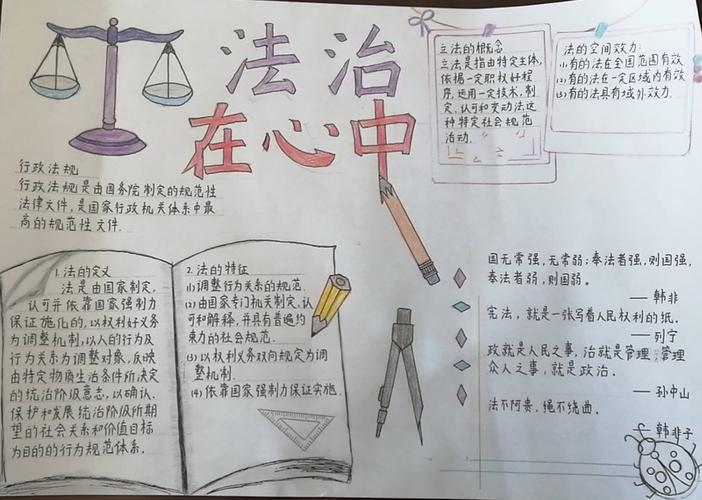 法治
在心中
立法的概念
立法是指由特定主体,
依据一定职权好程
序,运用一定技术,制
定、认可和变动法这
种特定社会规范
活动.
法的空间效力:
(1)有的法在全国范围有效
(2)有的法在一定区域内有效
(3)有的法具有域外效力.
行政法规
行政法规是由国务院制定的规范性
法律文件,是国家行政机关体系中最
高的规范性文件.
1.法的定义
法是由国家制定,
认可并依靠国家强制力
保证施化的,以权利好义务
为调整机制,以人的行为及
行为关系为调整对象,反映
由特定物质生活条件所决定
的统治阶级意志,以确认、
保护和发展统治阶级所期
望的社会关系和价值目标
为目的的行为规范体系.
2.法的特征
(1)调整行为关系的规范.
(2)由国家专门机关制定、认
可和解释,并具有普遍约
束力的社会规范.
(3)以权利义务双向规定为调
整机制.
(4)依靠国家强制力保证实施.
国无常强,无常弱:奉法者强,则国强,
奉法者弱,则国弱。
——韩非
宪法,就是一张写着人民权利的纸。
——列宁
政就是人民之事,治就是管理,管理
众人之事,就是政治。
——孙中山
法不阿贵,绳不绕曲。
——韩非子